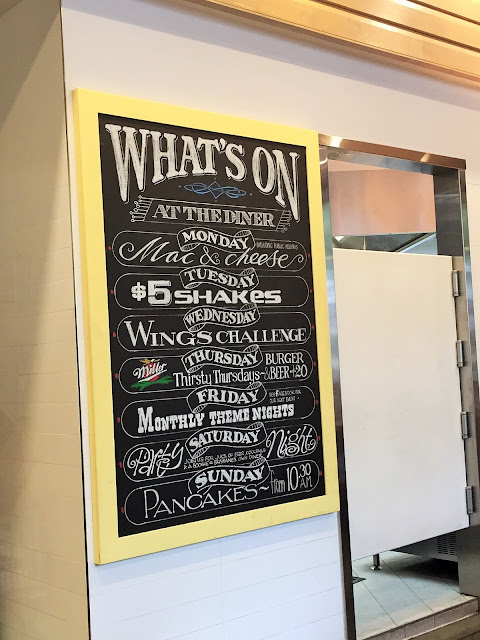 WHAT'S ON
AT THE DINER
MONDAY
Mac & cheese
TUESDAY
$5 SHAKES
WEDNESDAY
WINGS CHALLENGE
THURSDAY
Miller
Thirsty Thursdays~
BURGER
& BEER $20
FRIDAY
MONTHLY THEME NIGHTS
SATURDAY
Party Night
SUNDAY
PANCAKES~ from 10:30 A.M.